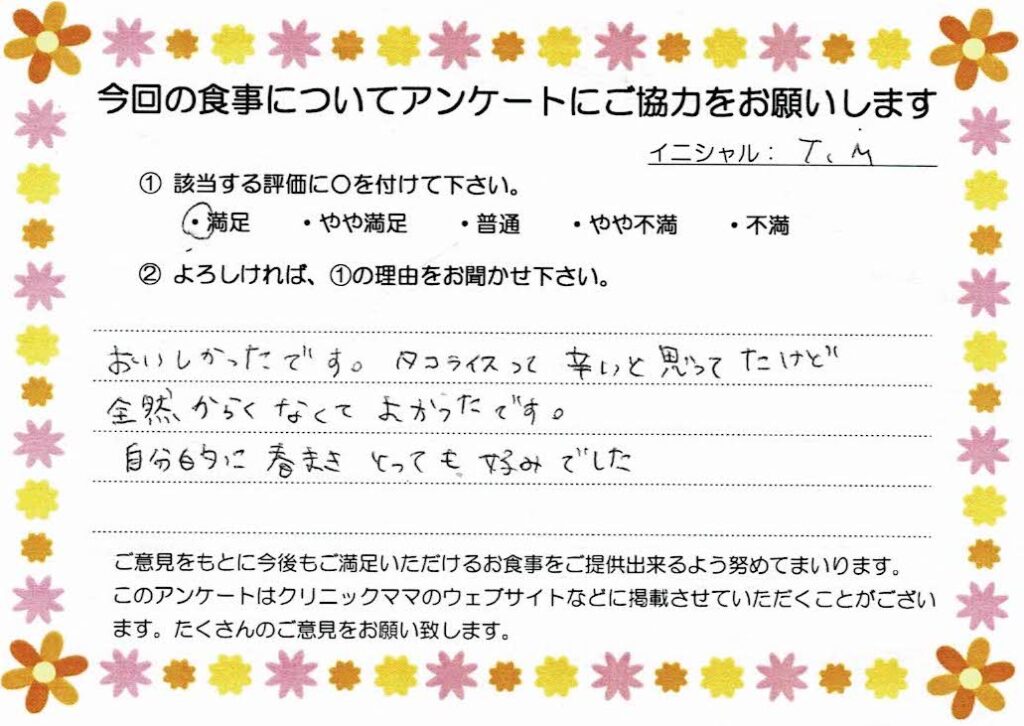 今回の食事についてアンケートにご協力をお願いします
イニシャル： T. M
① 該当する評価に〇を付けて下さい。
・満足 ・やや満足 ・普通 ・やや不満 ・不満
② よろしければ、①の理由をお聞かせ下さい。
おいしかったです。タコライスって 辛いと思ってたけど
全然からくなくてよかったです。
自分的に春まきとっても好みでした
ご意見をもとに今後もご満足いただけるお食事をご提供出来るよう努めてまいります。
このアンケートはクリニックママのウェブサイトなどに掲載させていただくことがござい
ます。たくさんのご意見をお願い致します。